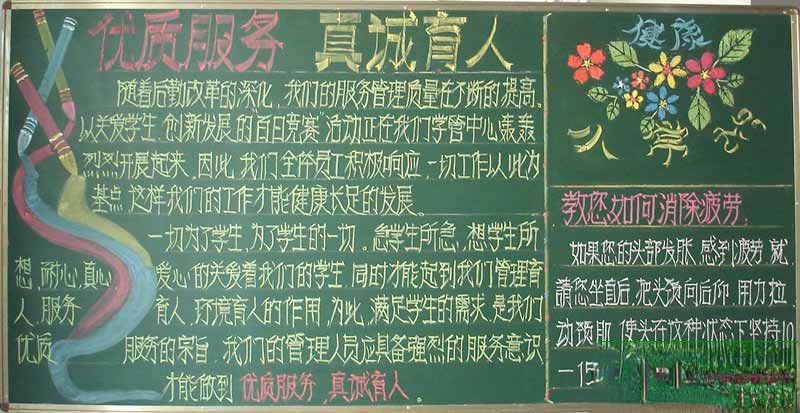 优质服务 真诚育人
随着后勤改革的深化,我们的服务管理质量在不断的提高。
以关爱学生,创新发展的百日竞赛"活动正在我们学管中心轰轰
烈烈开展起来,因此,我们全体员工积极响应,一切工作以此为
基点,这样我们的工作才能健康长足的发展。
一切为了学生,为了学生的一切。急学生所急,想学生所
想,耐心,真心 爱心的关爱着我们的学生,同时才能起到我们管理育
人,服务 育人,环境育人的作用,为此,满足学生的需求,是我们
优质 服务的宗旨,我们的管理人员应具备强烈的服务意识
才能做到 优质服务,真诚育人。
健康
教您如何消除疲劳:
如果您的头部发胀,感到疲劳,就
請您坐直后,把头烫向后仰,用力拉
动颈部,使头在这种状态下坚持10
一15